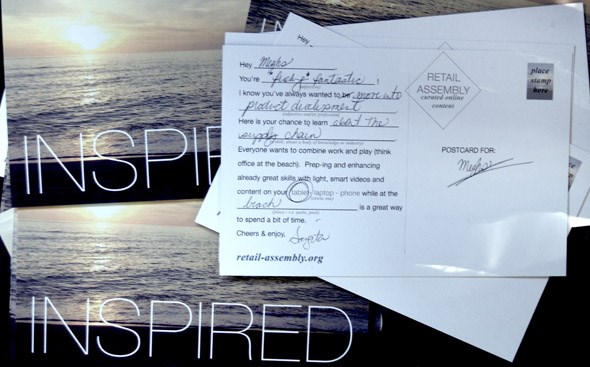 INSPI
INSPIRED
Hey
Hey
You're fantastic !
I know you've always wanted to be more into
product development
Here is your chance to learn about the
supply chain
Everyone wants to combine work and play (think
office at the beach). Prep-ing and enhancing
already great skills with light, smart videos and
content on your tablet - laptop - phone while at the
beach is a great way
to spend a bit of time.
Cheers & enjoy,
retail-assembly.org
RETAIL
ASSEMBLY
curated online
content
place
stamp
here
POSTCARD FOR: